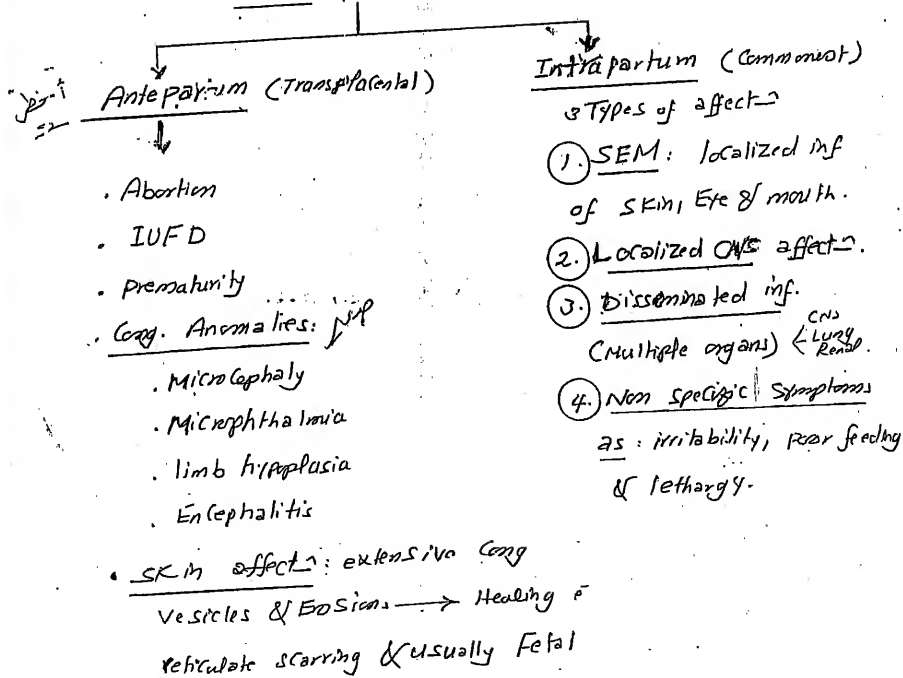 Antepartum (Transplacental)
. Abortion
. IUFD
. prematurity
. Cong. Anomalies:
. Microcephaly
. Microphthalmia
. limb hypoplasia
. Encephalitis
. Skin affectn: extensive Cong
vesicles & Erosions → Healing c̄
reticulate scarring & usually Fetal
Intrapartum (Commonest)
3 Types of affectn
1. SEM: localized inf
of skin, Eye & mouth.
2. Localized CNS affectn.
3. Disseminated inf.
(Multiple organs) < CNS
Lung
Renal.
4. Non specific symptoms
as: irritability, poor feeding
& lethargy.